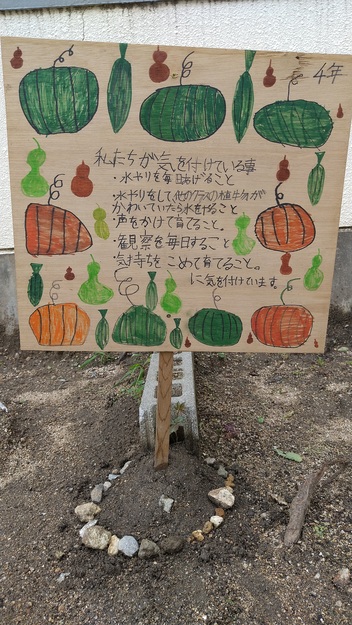 4年
私たちが気を付けている事
・水やりを毎日あげること
・水やりをして、他のクラスの植物が
かわいていたら水をけること
・声をかけて育てること。
・観察を毎日すること
・気持ちをこめて育てること。
に気を付けています。